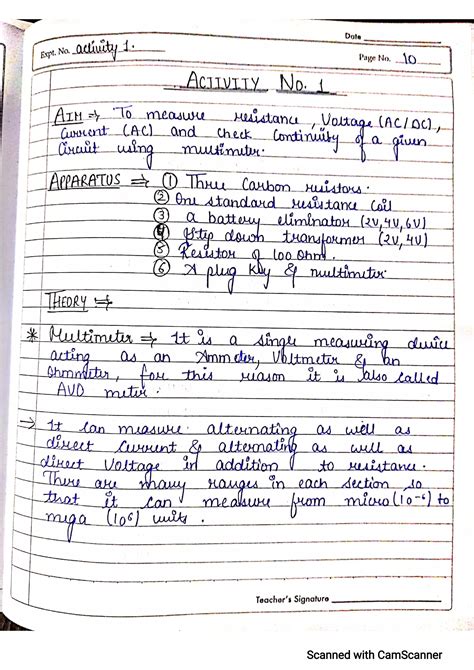 Date
Expt. No. activity 1.
Page No. 10
ACTIVITY No. 1
AIM ⇒ To measure resistance, Voltage (AC/DC),
Current (AC) and check Continuity of a given
Circuit using multimeter.
APPARATUS ⇒ ① Three Carbon resistors.
② One standard resistance coil
③ a battery eliminator (2V, 4V, 6V)
④ Step down transformer (2V, 4V)
⑤ Resistor of 100 Ohm.
⑥ A plug key & multimeter.
THEORY ⇒
* Multimeter ⇒ It is a single measuring device
acting as an Ammeter, Voltmeter & an
Ohmmeter, for this reason it is also called
AVO meter.
→ It can measure alternating as well as
direct Current & alternating as well as
direct Voltage in addition to resistance.
There are many ranges in each section so
that it can measure from micro (10⁻⁶) to
mega (10⁶) units.
Teacher's Signature
Scanned with CamScanner